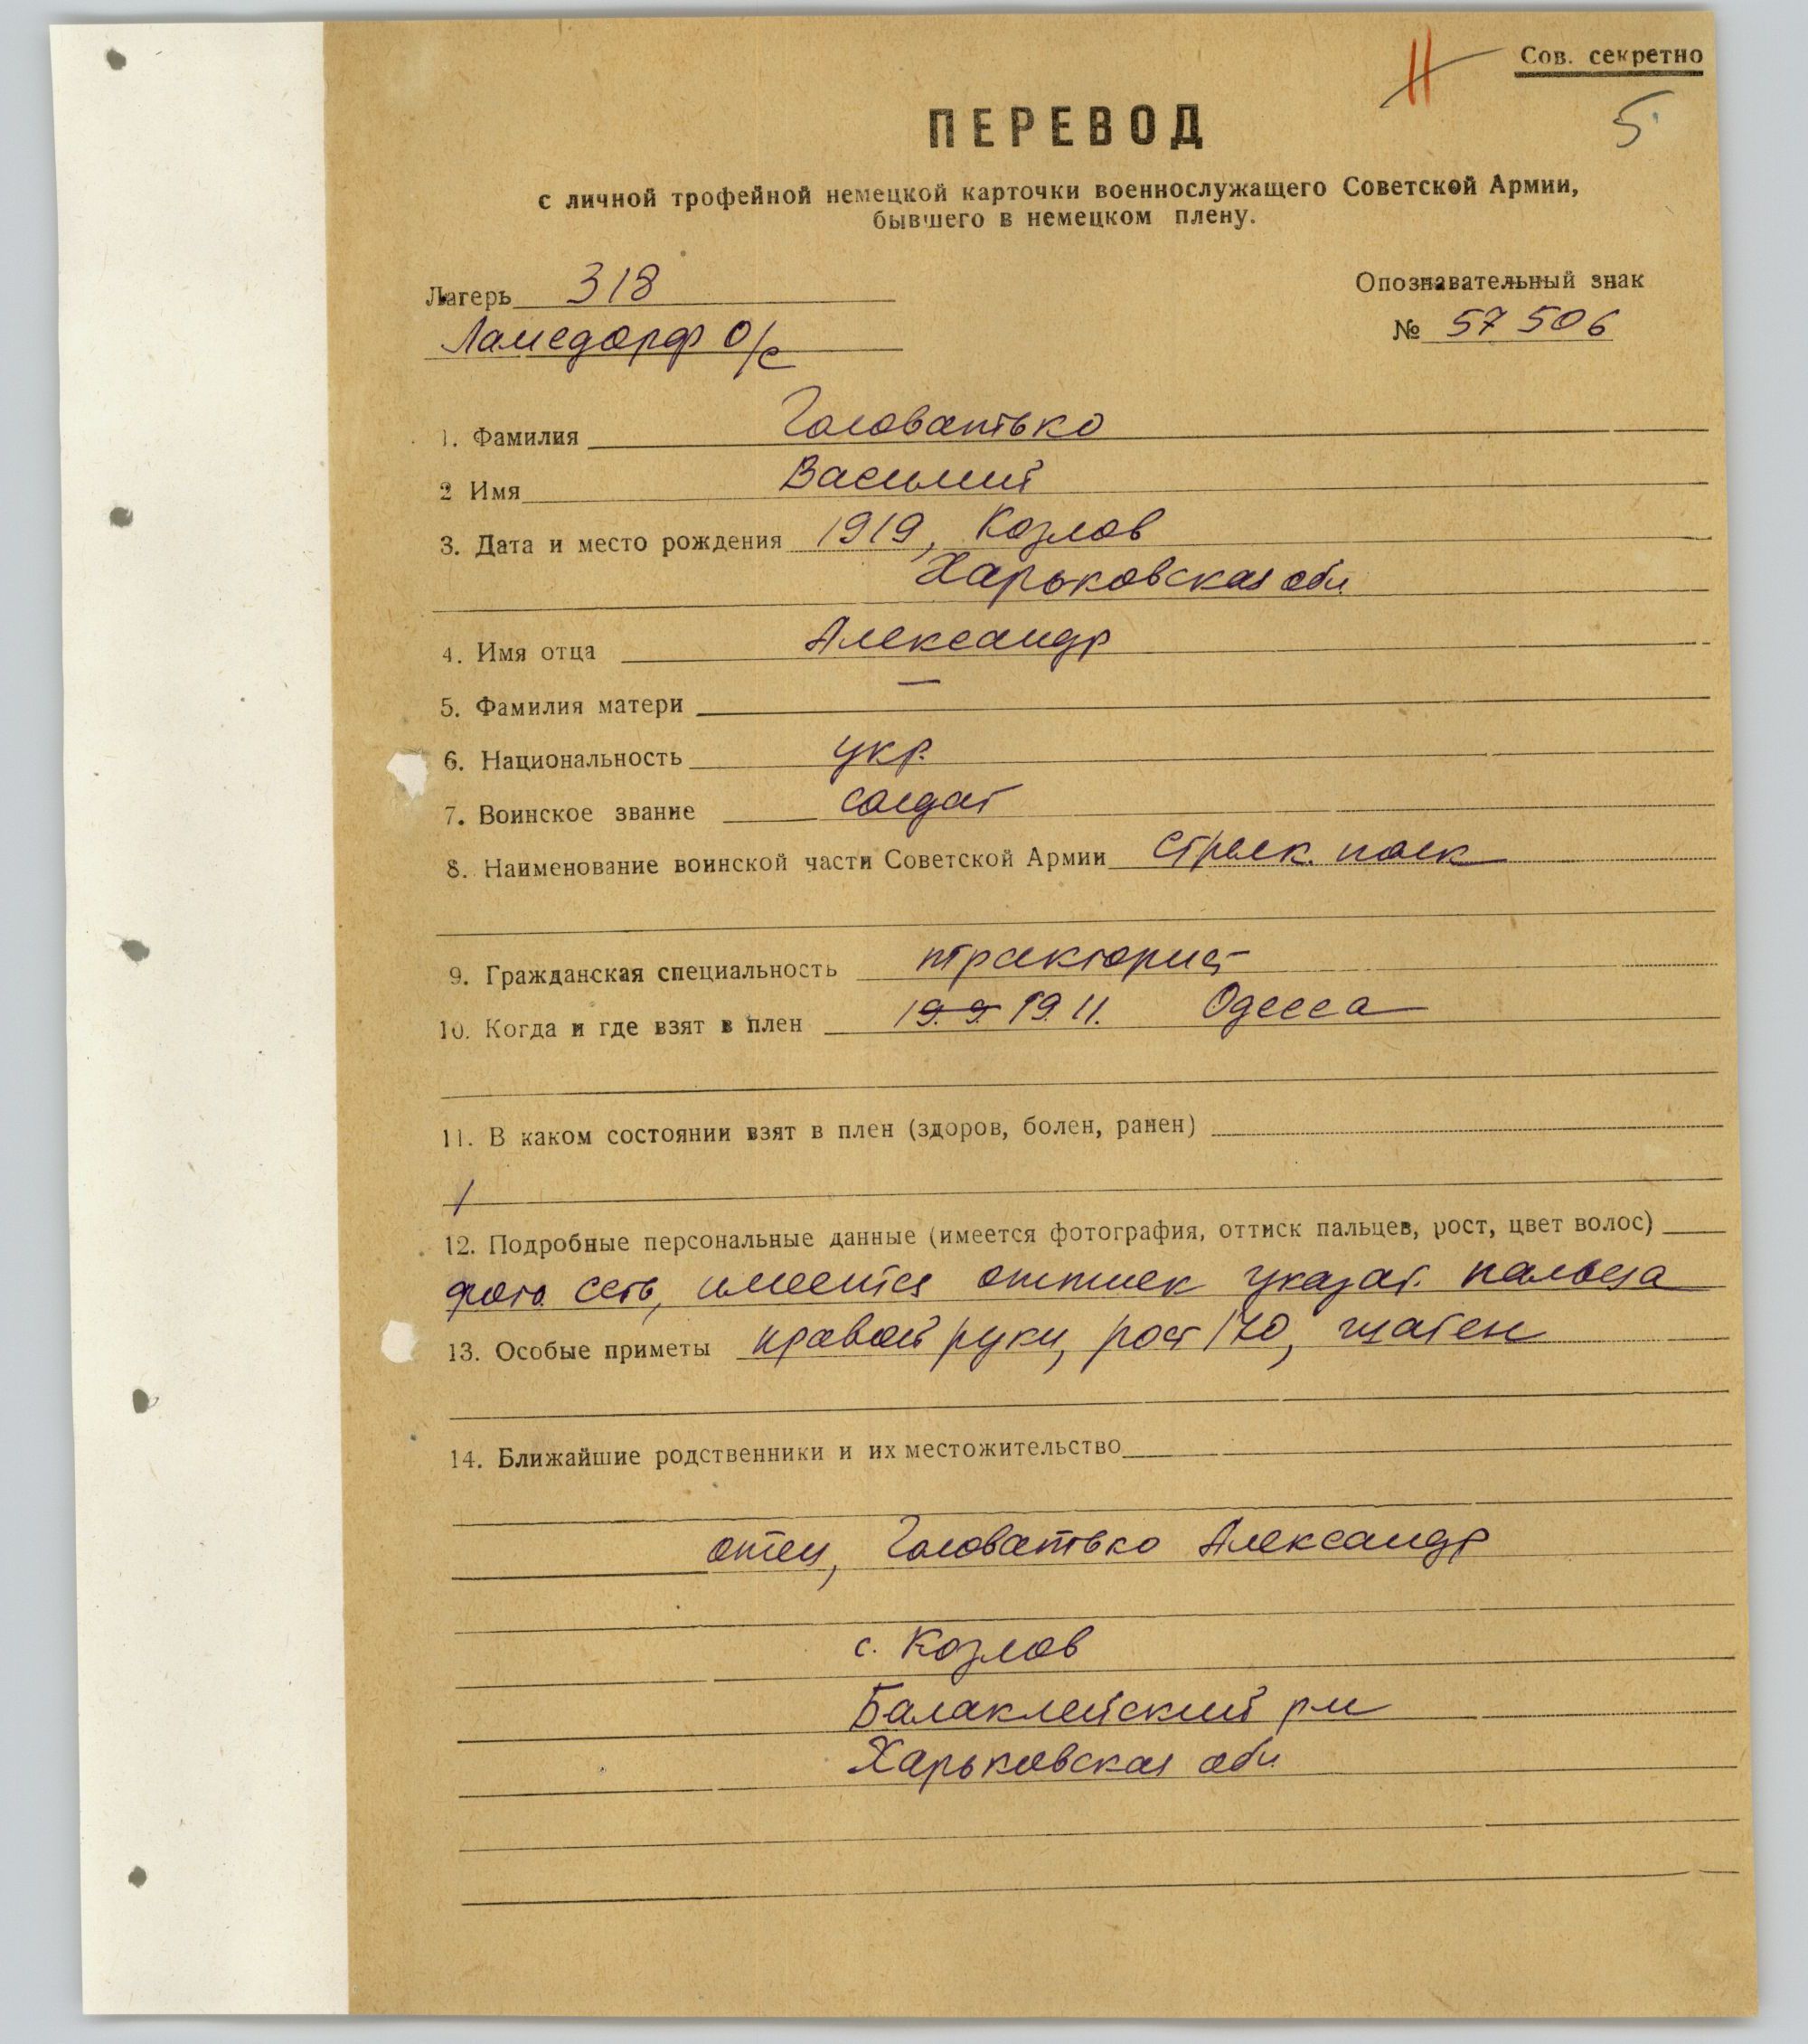 Сов. секретно
5
ПЕРЕВОД
с личной трофейной немецкой карточки военнослужащего Советской Армии,
бывшего в немецком плену.
Лагерь 318
Ламсдорф О/с
Опознавательный знак
№ 57 506
1. Фамилия Головатько
2 Имя Василий
3. Дата и место рождения 1919, Козлов
Харьковская обл.
4. Имя отца Александр
5. Фамилия матери —
6. Национальность укр.
7. Воинское звание солдат
8. Наименование воинской части Советской Армии стрелк. полк
9. Гражданская специальность тракторист
10. Когда и где взят в плен 19.9. 19.11. Одесса
11. В каком состоянии взят в плен (здоров, болен, ранен)
12. Подробные персональные данные (имеется фотография, оттиск пальцев, рост, цвет волос)
фото есть, имеется оттиск указат. пальца
13. Особые приметы правой руки, рост 170, шатен
14. Ближайшие родственники и их местожительство
отец, Головатько Александр
с. Козлов
Балаклейский р-н
Харьковская обл.